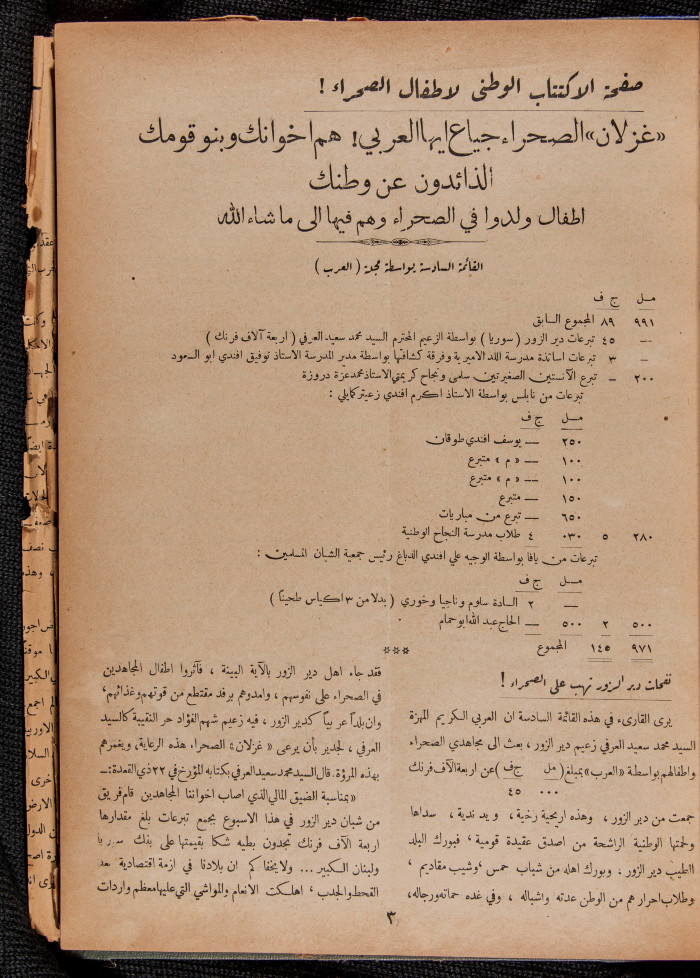 صفحة الاكتتاب الوطنى لاطفال الصحراء !
«غزلان» الصحراء جياع ايها العربي! هم اخوانك وبنو قومك
الذائدون عن وطنك
اطفال ولدوا في الصحراء وهم فيها الى ما شاء الله
القائمة السادسة بواسطة مجلة ( العرب )
مـل ج ف
٩٩١ ٨٩ المجموع السابق
— ٤٥ تبرعات دير الزور ( سوريا ) بواسطة الزعيم المحترم السيد محمد سعيد العرفي ( اربعة آلاف فرنك )
— ٣ تبرعات اساتذة مدرسة اللد الاميرية وفرقة كشافتها بواسطة مدير المدرسة الاستاذ توفيق افندي ابو السعود
٢٠٠ — تبرع الآنستين الصغيرتين سلمى ونجاح كريمتي الاستاذ محمد عزة دروزة
تبرعات من نابلس بواسطة الاستاذ اكرم افندي زعيتر كمايلي :
مـل ج ف
٢٥٠ — يوسف افندي طوقان
١٠٠ — « م » متبرع
١٠٠ — « م » متبرع
١٥٠ — متبرع
٦٥٠ — تبرع من مباريات
٢٨٠ ٥ ٠٣٠ ٤ طلاب مدرسة النجاح الوطنية
تبرعات من يافا بواسطة الوجيه علي افندي الدباغ رئيس جمعية الشبان المسلمين :
مـل ج ف
— ٢ السادة سلوم وناجيا وخوري ( بدلا من ٣ اكياس طحينا )
٥٠٠ ٢ ٥٠٠ — الحاج عبد الله ابو حمام
٩٧١ ١٤٥ المجموع
***
نفحات دير الزور تهب على الصحراء !
يرى القارىء في هذه القائمة السادسة ان العربي الكريم المهزة
السيد محمد سعيد العرفي زعيم دير الزور ، بعث الى مجاهدي الصحراء
واطفالهم بواسطة «العرب» بمبلغ ( مل ج ف ) عن اربعة آلاف فرنك
٠٠٠ ٤٥
جمعت من دير الزور ، وهذه اريحية رخية ، ويد ندية ، سداها
ولحمتها الوطنية الراشحة من اصدق عقيدة قومية ، فبورك البلد
الطيب دير الزور . وبورك اهله من شباب حمس ، وشيب مقاديم ،
وطلاب احرار هم من الوطن عدته واشباله ، وفي غده حماته ورجاله ،
فقد جاء اهل دير الزور بالآية البينة ، فآثروا اطفال المجاهدين
في الصحراء على نفوسهم ، وامدوهم برفد مقتطع من قوتهم وغذائهم ،
وان بلداً عربياً كدير الزور ، فيه زعيم شهم الفؤاد حر النقيبة كالسيد
العرفي ، لجدير بأن يرعى « غزلان » الصحراء هذه الرعاية ، ويغمرهم
بهذه المروة . قال السيد محمد سعيد العرفي بكتابه المؤرخ في ٢٢ ذي القعدة :—
«بمناسبة الضيق المالي الذي اصاب اخواننا المجاهدين قام فريق
من شبان دير الزور في هذا الاسبوع بجمع تبرعات بلغ مقدارها
اربعة الآف فرنك تجدون بطيه شكا بقيمتها على بنك
ولبنان الكبير ... ولا يخفاكم ان بلادنا في ازمة اقتصادية
القحط والجدب ، اهلكت الانعام والمواشي التي عليها معظم واردات
٣